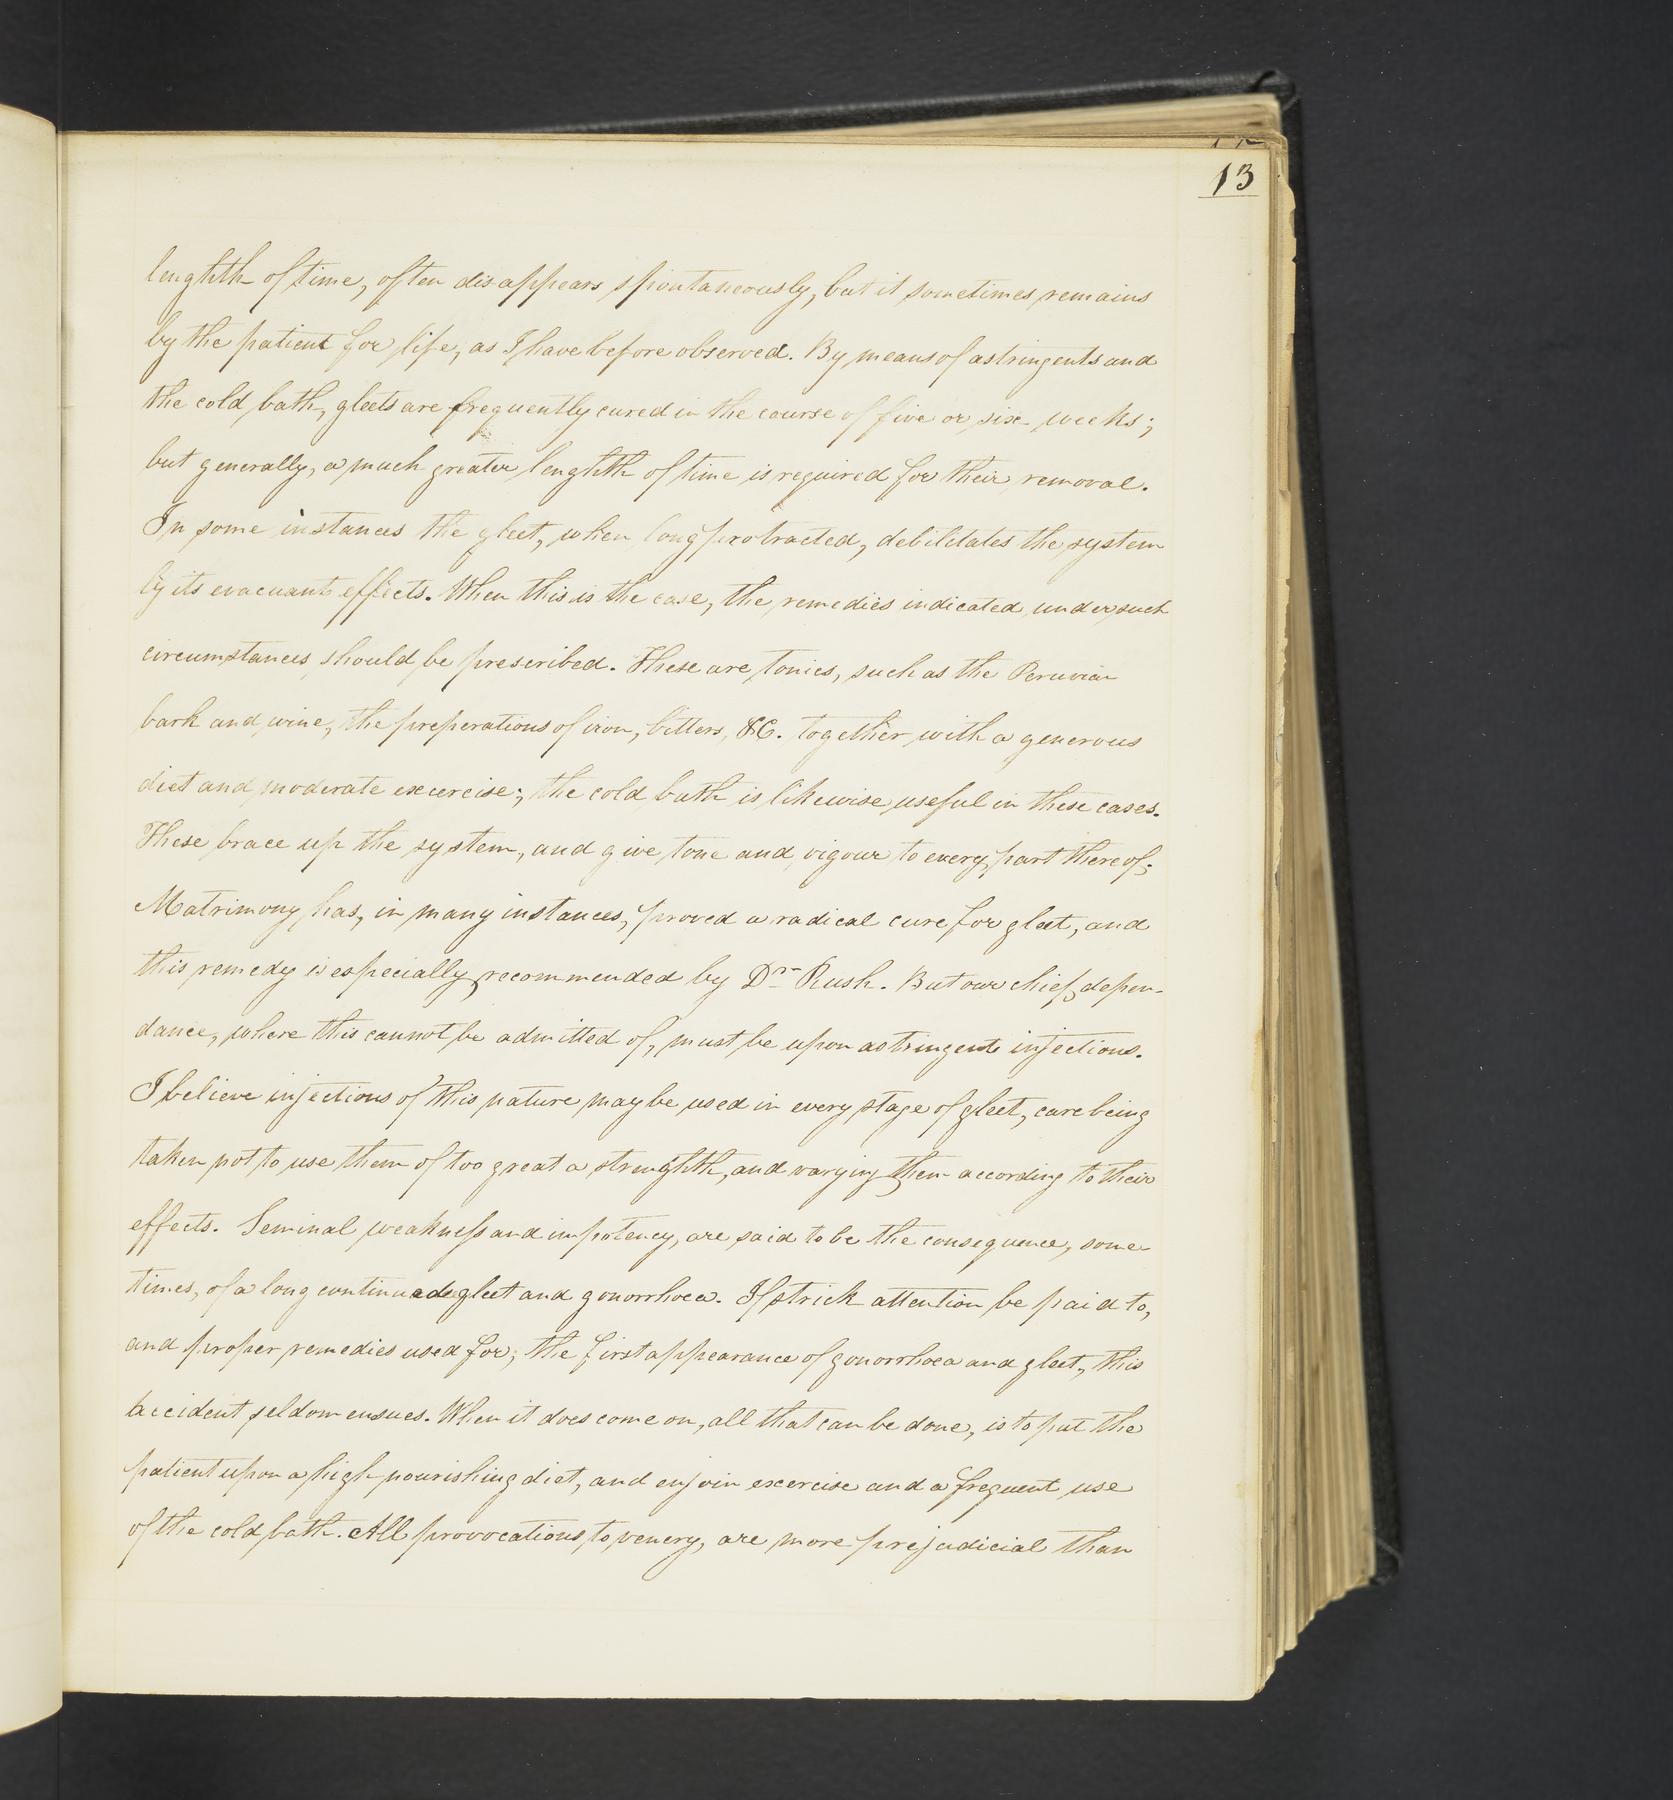 13
lenghth of time, often disappears spontaneously, but it sometimes remains
by the patient for life, as I have before observed. By means of astringents and
the cold bath, gleets are frequently cured in the course of five or six weeks;
but generally, a much greater lenghth of time is required for their removal.
In some instances the gleet, when long protracted, debilitates the system
by its evacuant effects. When this is the case, the remedies indicated under such
circumstances should be prescribed. These are tonics, such as the Peruvian
bark and wine, the preperations of iron, bitters, &C. together with a generous
diet and moderate excercise; the cold bath is likewise useful in these cases.
These brace up the system, and give tone and vigour to every part thereof;
Matrimony has, in many instances, proved a radical cure for gleet, and
this remedy is especially recommended by Dr. Rush. But our chief depen-
dance, where this cannot be admitted of, must be upon astringent injections.
I believe injections of this nature may be used in every stage of gleet, care being
taken not to use them of too great a strenghth, and varying them according to their
effects. Seminal weakness and impotency, are said to be the consequence, some-
times, of a long continued gleet and gonorrhoea. If strick attention be paid to,
and proper remedies used for, the first appearance of gonorrhoea and gleet, this
accident seldom ensues. When it does come on, all that can be done, is to put the
patient upon a high nourishing diet, and enjoin excercise and a frequent use
of the cold bath. All provocations to venery, are more prejudicial than